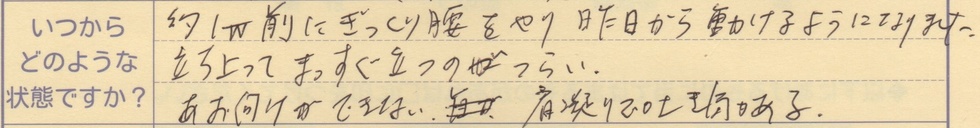 いつから
どのような
状態ですか?
約1W前にぎっくり腰をやり昨日から動けるようになりました。
立ち上ってまっすぐ立つのがつらい.
あお向けができない. 肩凝りで吐き気がある.